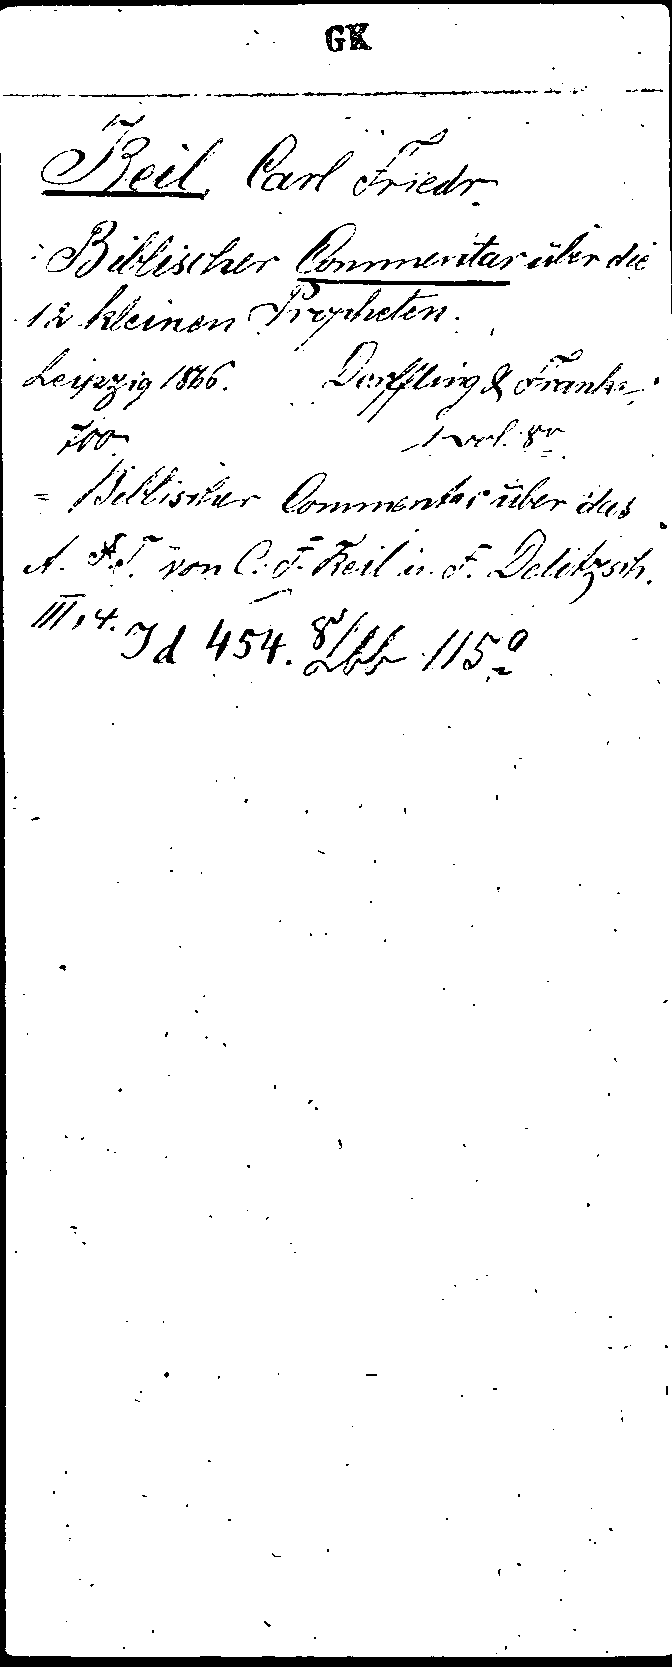 GK
Keil, Carl Friedr.
Biblischer Commentar über die
12 kleinen Propheten.
Leipzig 1866. Dörffling & Franke.
700. 1 vol. 8º
= Biblischer Commentar über das
A. T. von C. F. Keil u. F. Delitzsch.
III, 4. Jd 454. 8º 115ª